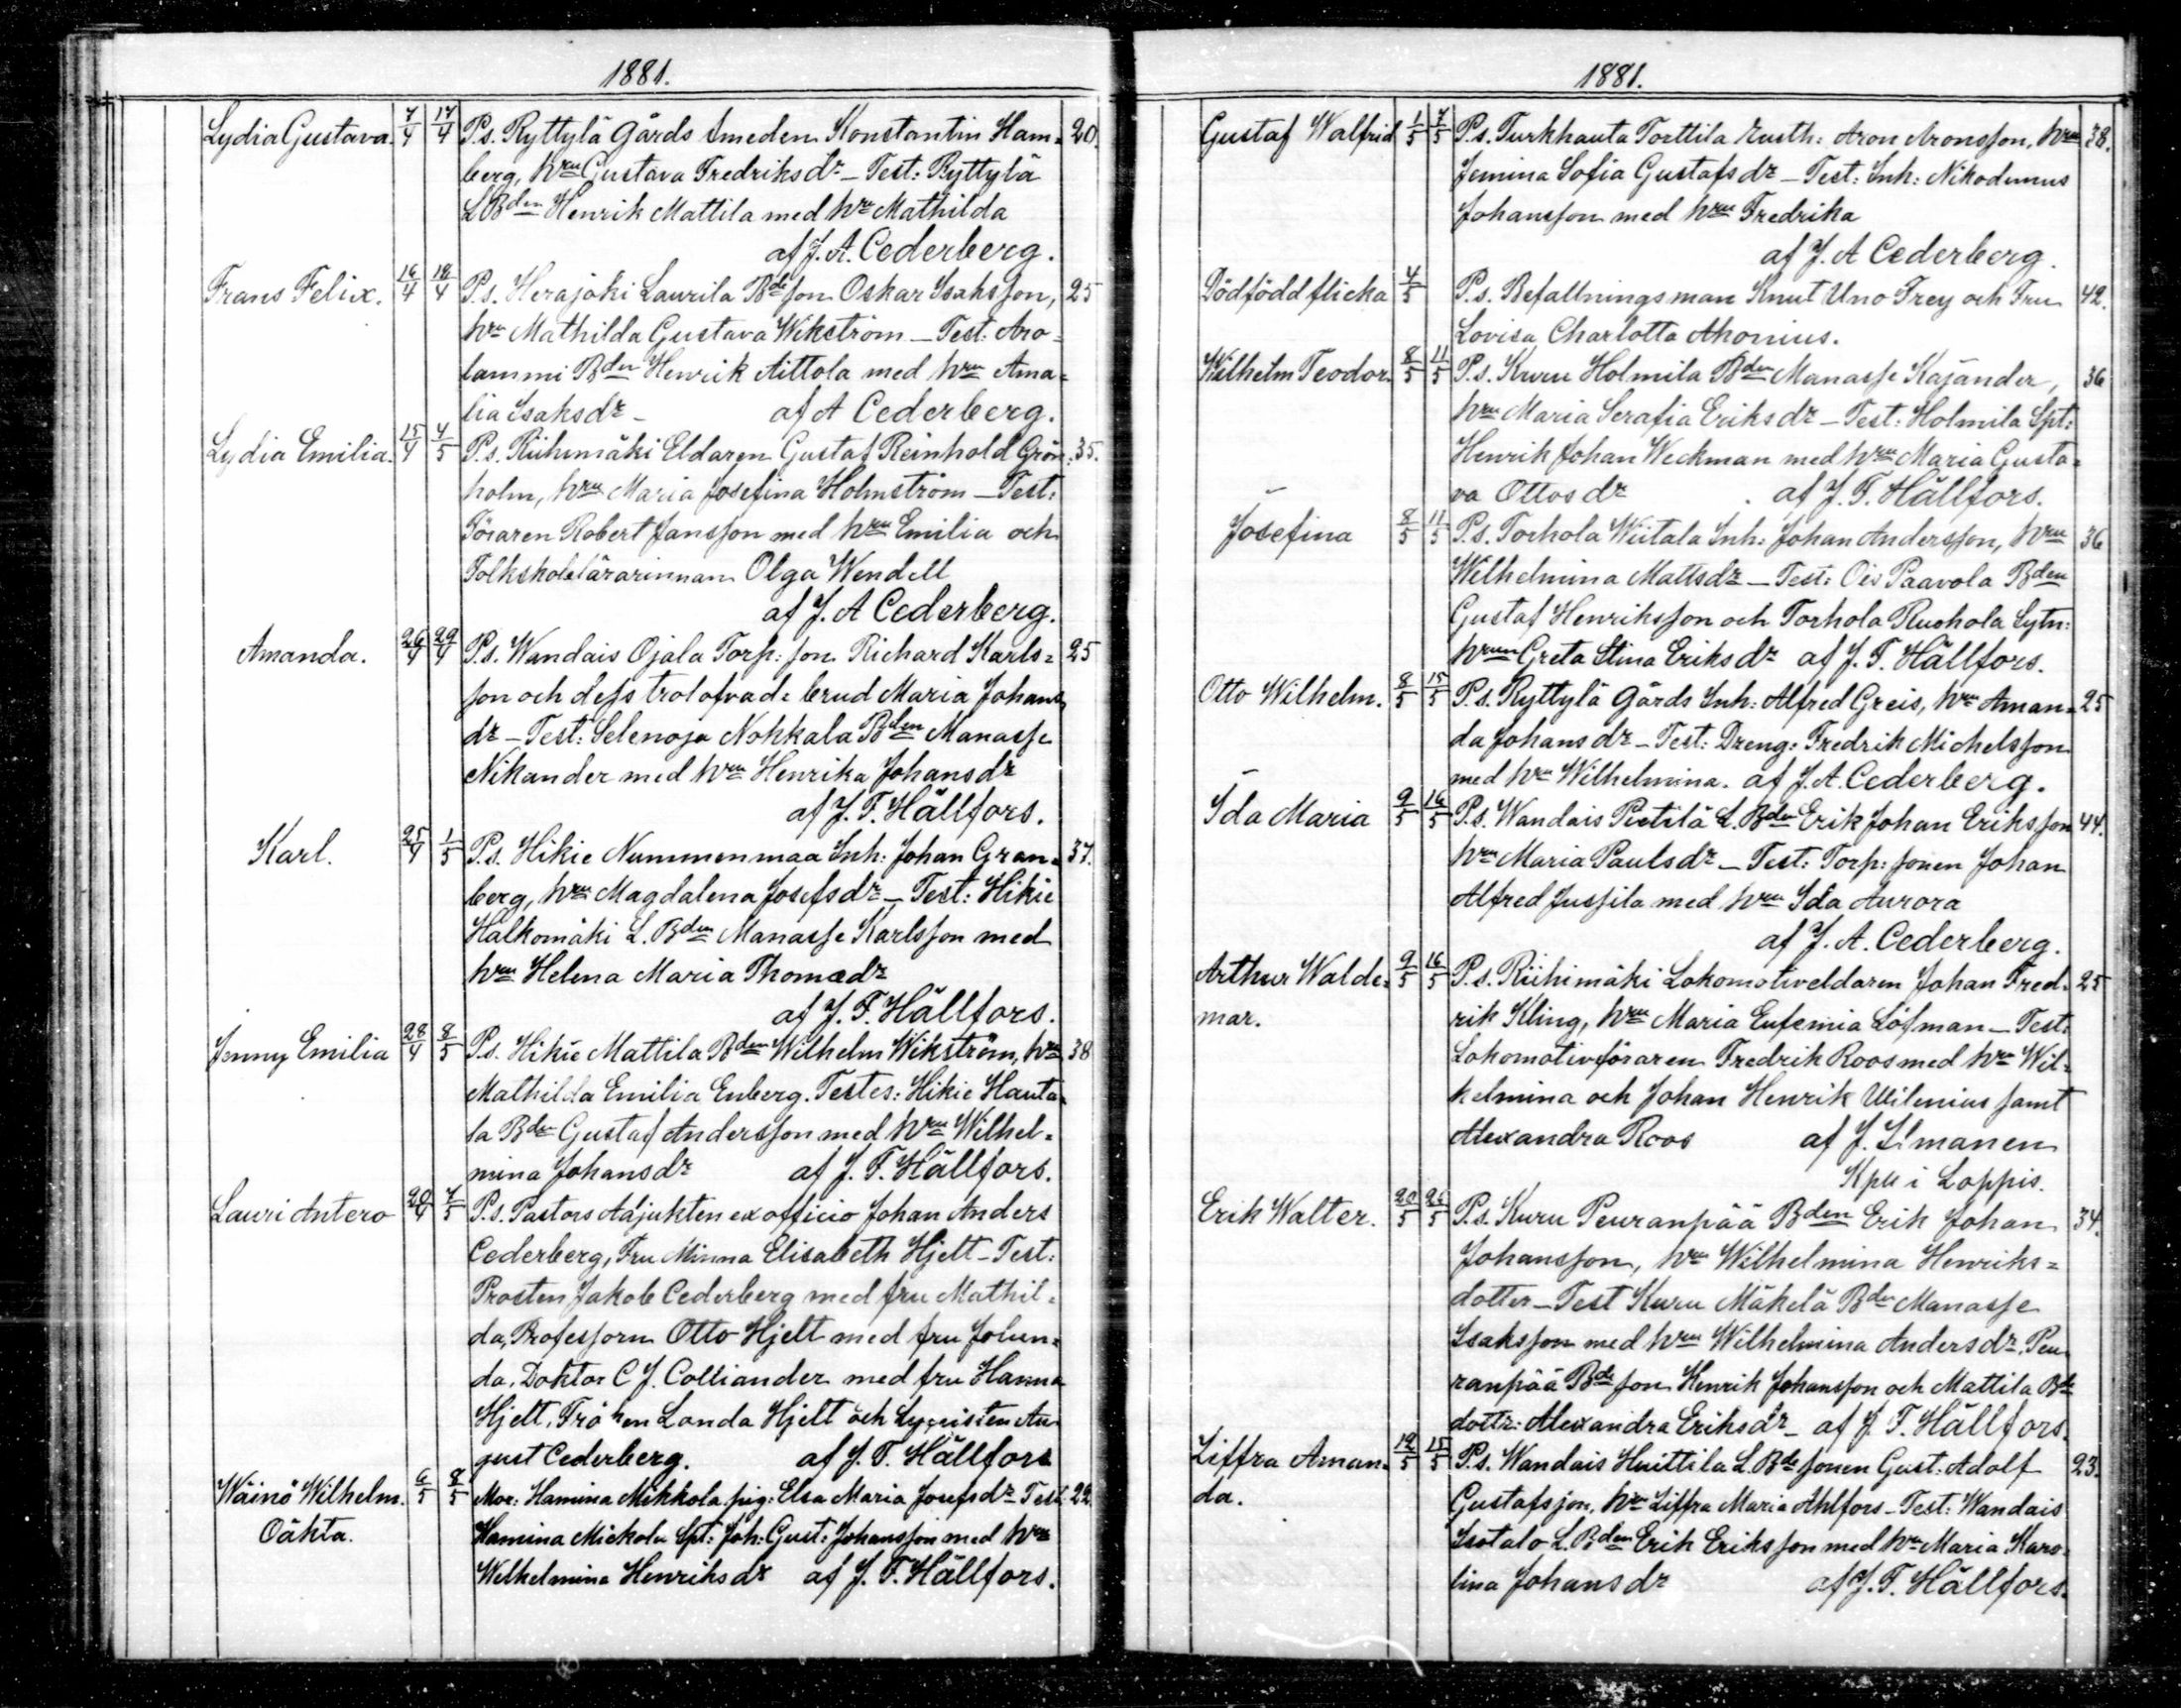 1881.
Lydia Gustava. 7/4 17/4 P.s. Ryttylä Gårds smeden Konstantin Ham= 20.
berg, hru Gustava Fredriksdr – Test: Ryttylä
L Bden Henrik Mattila med hru Mathilda
af J. A. Cederberg.
Frans Felix. 16/4 18/4 P.s. Herajoki Laurila Bdeson Oskar Isaksson, 25
hru Mathilda Gustava Wikström – Test: Aro=
lammi Bden Henrik Aittola med hru Ama=
lia Isaksdr – af A Cederberg.
Lydia Emilia. 15/4 4/5 P.s. Riihimäki Eldaren Gustaf Reinhold Grön= 35.
holm, hru Maria Josefina Holmström – Test:
Föraren Robert Jansson med hru Emilia och
Folkskolelärarinnan Olga Wendell
af J. A Cederberg.
Amanda. 26/4 29/4 P.s. Wandais Ojala Torp: son Richard Karls= 25
son och dess trolofvade brud Maria Johans
dr – Test: Selenoja Nohkala Bden Manasse
Nikander med hru Henrika Johansdr
af J. F. Hällfors.
Karl. 25/4 1/5 P.s. Hikie Nummenmaa Inh: Johan Gran= 37.
berg, hru Magdalena Josefsdr – Test: Hikie
Halkomäki L. Bden Manasse Karlsson med
hru Helena Maria Thomædr
af J. F. Hällfors.
Jenny Emilia 28/4 8/5 P.s. Hikie Mattila Bden Wilhelm Wikström, hru 38
Mathilda Emilia Enberg. Testes: Hikie Hauta=
la Bden Gustaf Andersson med hru Wilhel=
mina Johansdr af J. F. Hällfors.
Lauri Antero 20/4 7/5 P.s. Pastors Adjunkten ex officio Johan Anders
Cederberg, Fru Minna Elisabeth Hjelt – Test:
Prosten Jakob Cederberg med fru Mathil=
da, Professorn Otto Hjelt med fru Jolan=
da, Doktor C J. Colliander med fru Hanna
Hjelt, Fröken Landa Hjelt och Lyceisten Au
gust Cederberg. af J. F. Hällfors
Wäinö Wilhelm. 6/5 8/5 Mor: Hamina Mikkola pig: Elsa Maria Josefsdr Test: 22
Oäkta. Hamina Mickola Spt: Joh: Gust: Johansson med hru
Wilhelmina Henriksdr af J. F. Hällfors.
1881.
Gustaf Walfrid 1/5 7/5 P.s. Turkhauta Torttila Rusth: Aron Aronsson, hru 38.
Jemina Sofia Gustafsdr – Test: Inh: Nikodemus
Johansson med hru Fredrika
af J. A Cederberg.
Dödfödd flicka 4/5 P.s. Befallningsman Knut Uno Frey och Fru 42.
Lovisa Charlotta Ahonius.
Wilhelm Teodor. 8/5 11/5 P.s. Kuru Holmila Bden Manasse Kajander, 36
hru Maria Serafia Eriksdr – Test: Holmila Spt:
Henrik Johan Weckman med hru Maria Gusta=
va Ottosdr af J. F. Hällfors.
Josefina 8/5 11/5 P.s. Torhola Wiitala Inh: Johan Andersson, hru 36
Wilhelmina Mattsdr – Test: Ois Paavola Bden
Gustaf Henriksson och Torhola Ruohola Sytn:
hrun Greta Stina Eriksdr af J. F. Hällfors.
Otto Wilhelm. 8/5 15/5 P.s. Ryttylä Gårds Inh: Alfred Greis, hru Aman= 25
da Johansdr – Test: Dreng: Fredrik Michelsson
med hru Wilhelmina. af J. A. Cederberg.
Ida Maria 9/5 16/5 P.s. Wandais Pietilä L. Bden Erik Johan Eriksson 44.
hru Maria Paulsdr – Test: Torp: sonen Johan
Alfred Jussila med hru Ida Aurora
af J. A. Cederberg.
Arthur Walde= 9/5 16/5 P.s. Riihimäki Lokomotiveldaren Johan Fred= 25
mar. rik Kling, hru Maria Eufemia Löfman – Test:
Lokomotivföraren Fredrik Roos med hru Wil=
helmina och Johan Henrik Wilenius samt
Alexandra Roos af J. Ilmanen
Kpu i Loppis.
Erik Walter. 20/5 26/5 P.s. Kuru Peuranpää Bden Erik Johan 34.
Johansson, hru Wilhelmina Henriks=
dotter – Test Kuru Mäkelä Bden Manasse
Isaksson med hru Wilhelmina Andersdr, Peu
ranpää Bdeson Henrik Johansson och Mattila Bde
dottr: Alexandra Eriksdr – af J. F. Hällfors.
Siffra Aman= 12/5 15/5 P.s. Wandais Huittila L. Bdesonen Gust: Adolf 23.
da. Gustafsson, hru Siffra Maria Ahlfors – Test: Wandais
Isotalo L. Bden Erik Eriksson med hru Maria Karo=
lina Johansdr af J. F. Hällfors.